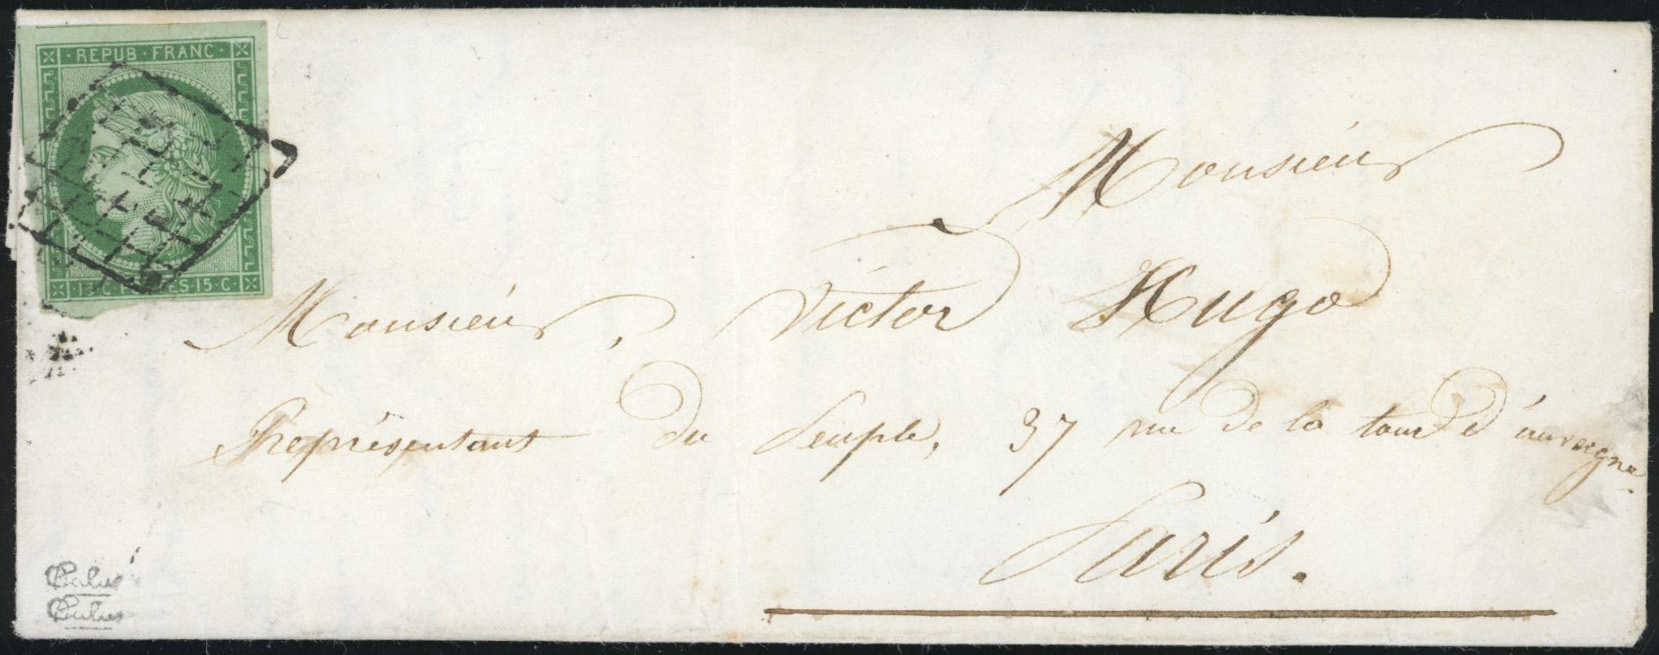 REPUB · FRANC ·
· 15 · C · ES · 15 · C ·
Monsieur
Monsieur, Victor Hugo
Représentant du Peuple, 37 rue de la tour d'auvergne
Paris.
Calves
Calves